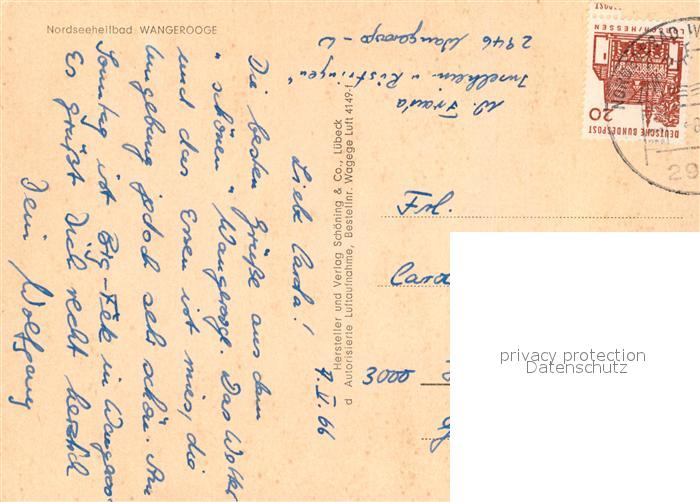 Nordseeheilbad WANGEROOGE
W. Frauda
"Inselheim u. Rüstringen"
2946 Wangerooge - U
9.V.66
Liebe Carola!
Die besten Grüße aus dem
"schönen" Wangerooge. Das Wetter
und das Essen ist mies, die
Umgebung jedoch sehr schön. Am
Sonntag ist Big-Fete in Wangeroo
Es grüßt Dich recht herzlich
Dein Wolfgang
Hersteller und Verlag Schöning & Co., Lübeck
d Autorisierte Luftaufnahme, Bestellnr. Wagege Luft 4149 f
DEUTSCHE BUNDESPOST
20
LORSCH/HESSEN
29
Frl.
Caro
3000
privacy protection
Datenschutz